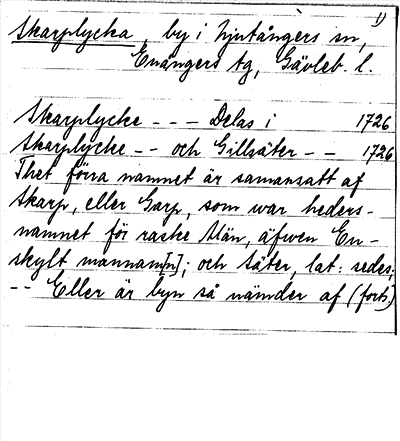 1)
Skarplycka, by i Njutångers sn,
Enångers tg, Gävleb. l.
Skarplycke - - - Delas i 1726
Skarplycke - - och Gillsäter - - 1726
Thet förra namnet är samansatt af
Skarp, eller Garp, som war heders-
namnet för raske Män, äfwen En-
skylt mannam[n]; och säter, lat: sedes;
- - Eller är byn så nämder af (forts.)